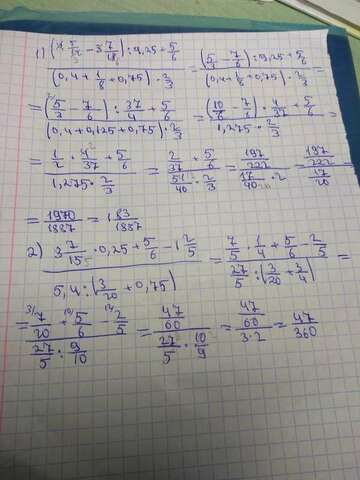 1) (4 5/12 − 3 7/18) : 9,25 + 5/6 / (0,4 + 1/8 + 0,75) · 2/3 = (5/3 − 7/6) : 9,25 + 5/6 / (0,4 + 1/8 + 0,75) · 2/3 =
= (5/3 − 7/6) : 37/4 + 5/6 / (0,4 + 0,125 + 0,75) · 2/3 = (10/6 − 7/6) · 4/37 + 5/6 / 1,275 · 2/3 =
= 1/2 · 4/37 + 5/6 / 1,275 · 2/3 = 2/37 + 5/6 / 51/40 · 2/3 = 197/222 / 17/40 · 2 = 197/222 / 17/20
= 1970/1887 = 1 83/1887
2) 3 7/15 · 0,25 + 5/6 − 1 2/5 / 5,4 : (3/20 + 0,75) = 7/5 · 1/4 + 5/6 − 2/5 / 27/5 : (3/20 + 3/4) =
= 7/20 + 5/6 − 2/5 / 27/5 : 9/10 = 47/60 / 27/5 · 10/9 = 47/60 / 3 · 2 = 47/360